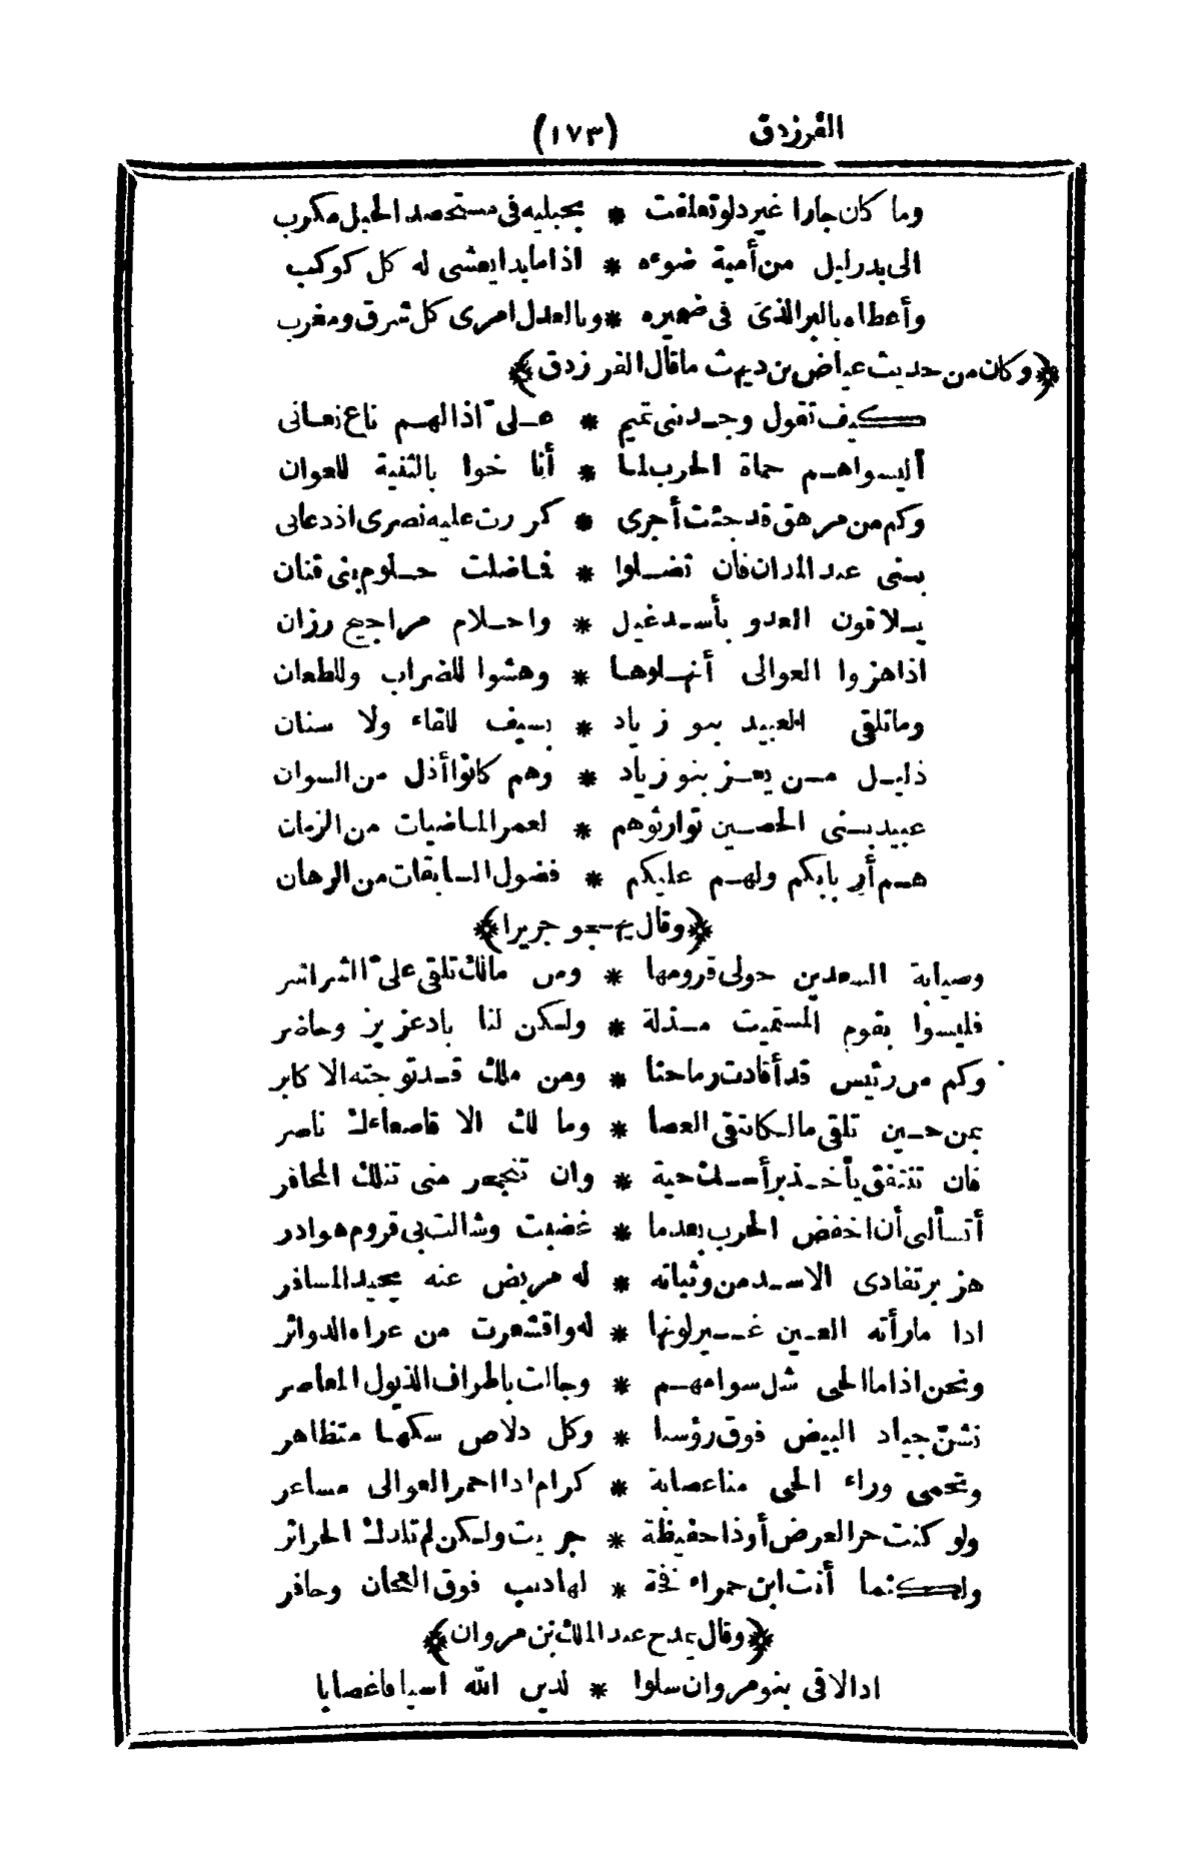 الفرزدق (١٧٣)
وما كان جارا غير دلو تعلقت * بحبليه فى مستحصد الحبل مكرب
الى بدر ليل من أمية ضوءه * اذا ما بدا يعشى له كل كوكب
وأعطاه بالبر الذى فى ضميره * وبالعدل امرى كل شرق ومغرب
﴿وكان من حديث عياض بن ديهث ما قال الفرزدق﴾
كيف تقول وجد بنى تميم * على اذا لهم ناع نعانى
أليسوا هم حماة الحرب لما * أنا خوا بالثنية للعوان
وكم من مرهق قد جئت أجرى * كررت عليه نصرى اذ دعانى
بنى عبد المدان فان تضلوا * فما ضلت حلوم بنى قنان
يلاقون العدو بأسد غيل * واحلام مراجيح رزان
اذا هزوا العوالى أنهلوها * وهشوا للضراب وللطعان
وما تلقى العبيد بنو زياد * بسيف للقاء ولا سنان
ذليل من يعز بنو زياد * وهم كانوا أذل من السوان
عبيد بنى الحصين توارثوهم * لعمر الماضيات من الزمان
هم أربابكم ولهم عليكم * فضول السابقات من الرهان
﴿وقال يهجو جريرا﴾
وصيابة السعدين حولى قرومها * ومن مالك تلقى علىّ الشراشر
فليسوا بقوم المستميت مذلة * ولكن لنا باد عزيز وحاضر
وكم من رئيس قد أقادت رماحنا * ومن ملك قد توجته الاكابر
بمن حين تلقى مالكا تتقى العصا * وما لك الا قاصعاءك ناصر
فان تنتفق يأخذ برأسك حية * وان تنجحر منى تنلك المحافر
أتسألى أن اخفض الحرب بعدما * غضبت وشالت بى قروم هوادر
هز بر تفادى الاسد من وثباته * له مربض عنه يحيد المسافر
اذا ما رأته العين غير لونها * له واقشعرت من عراه الدوائر
ونحن اذا ما الحى شل سوامهم * وجالت باطراف الذيول المعاصر
نشنّ جياد البيض فوق رؤسنا * وكل دلاص سكها متظاهر
ونحمى وراء الحى منا عصابة * كرام اذا احمر العوالى مساعر
ولو كنت حر العرض أو ذا حفيظة * جريت ولكن لم تلدك الحرائر
ولكنما أنت ابن حمراء فخة * لها ذنب فوق العجان وحافر
﴿وقال يمدح عبد الملك بن مروان﴾
اذا لاقى بنو مروان سلوا * لدين الله اسيافا غضابا